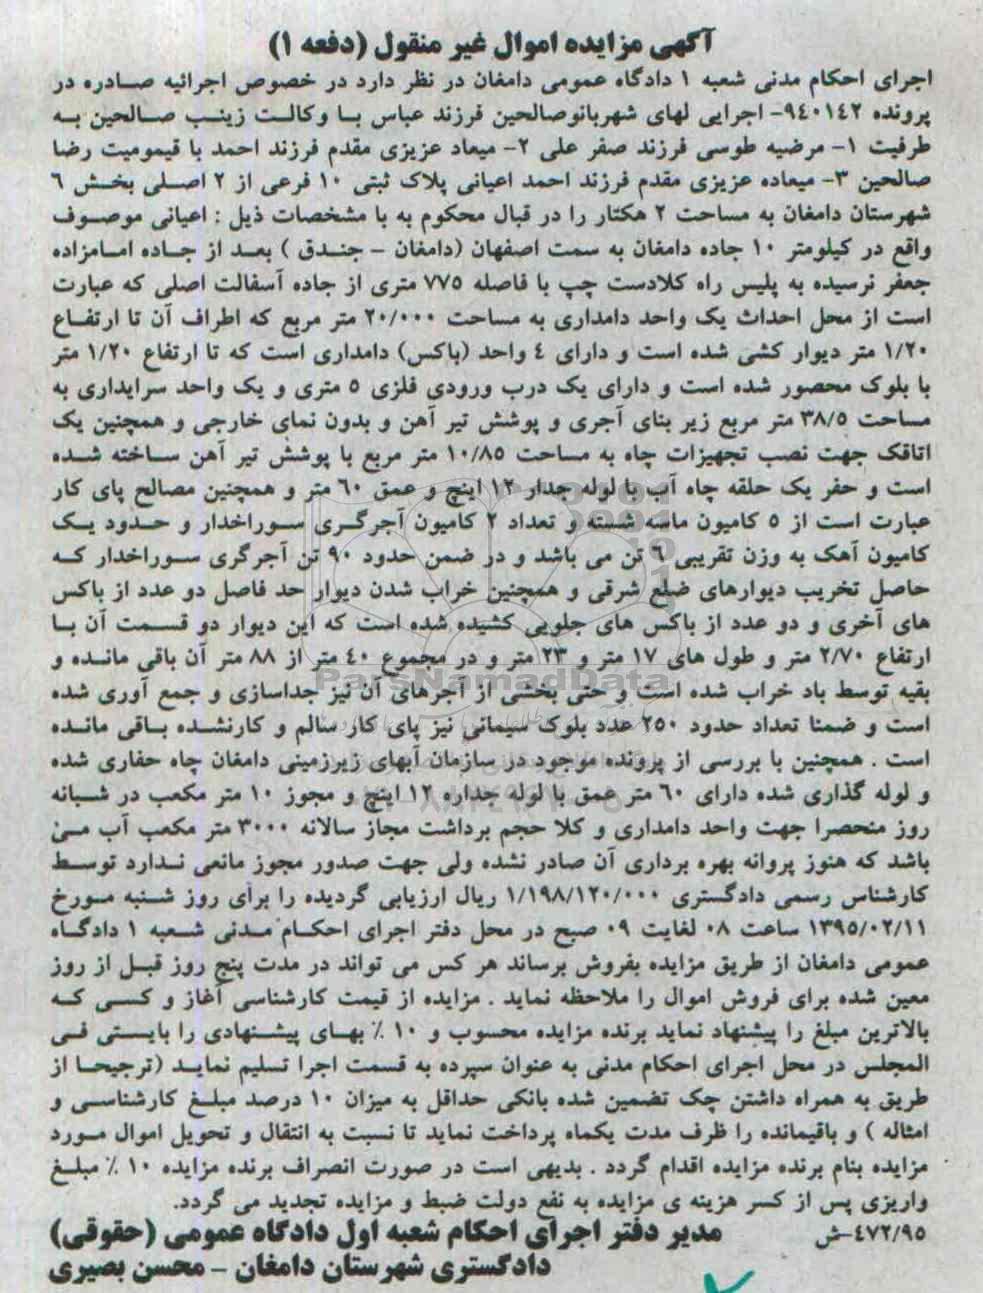 آگهی مزایده اموال غیر منقول (دفعه ۱)
اجرای احکام مدنی شعبه ۱ دادگاه عمومی دامغان در نظر دارد در خصوص اجرائیه صادره در
پرونده ۹۴۰۱۴۲- اجرایی لهای شهربانوصالحین فرزند عباس با وکالت زینب صالحین به
طرفیت ۱- مرضیه طوسی فرزند صفر علی ۲- میعاد عزیزی مقدم فرزند احمد با قیمومیت رضا
صالحین ۳- میعاده عزیزی مقدم فرزند احمد اعیانی پلاک ثبتی ۱۰ فرعی از ۲ اصلی بخش ۶
شهرستان دامغان به مساحت ۲ هکتار را در قبال محکوم به با مشخصات ذیل : اعیانی موصوف
واقع در کیلومتر ۱۰ جاده دامغان به سمت اصفهان (دامغان - جندق ) بعد از جاده امامزاده
جعفر نرسیده به پلیس راه کلادست چپ با فاصله ۷۷۵ متری از جاده آسفالت اصلی که عبارت
است از محل احداث یک واحد دامداری به مساحت ۲۰/۰۰۰ متر مربع که اطراف آن تا ارتفاع
۱/۲۰ متر دیوار کشی شده است و دارای ۴ واحد (باکس) دامداری است که تا ارتفاع ۱/۲۰ متر
با بلوک محصور شده است و دارای یک درب ورودی فلزی ۵ متری و یک واحد سرایداری به
مساحت ۳۸/۵ متر مربع زیر بنای آجری و پوشش تیر آهن و بدون نمای خارجی و همچنین یک
اتاقک جهت نصب تجهیزات چاه به مساحت ۱۰/۸۵ متر مربع با پوشش تیر آهن ساخته شده
است و حفر یک حلقه چاه آب با لوله جدار ۱۲ اینچ و عمق ۶۰ متر و همچنین مصالح پای کار
عبارت است از ۵ کامیون ماسه شسته و تعداد ۲ کامیون آجرگری سوراخدار و حدود یک
کامیون آهک به وزن تقریبی ۶ تن می باشد و در ضمن حدود ۹۰ تن آجرگری سوراخدار که
حاصل تخریب دیوارهای ضلع شرقی و همچنین خراب شدن دیوار حد فاصل دو عدد از باکس
های آخری و دو عدد از باکس های جلویی کشیده شده است که این دیوار دو قسمت آن با
ارتفاع ۲/۷۰ متر و طول های ۱۷ متر و ۲۳ متر و در مجموع ۴۰ متر از ۸۸ متر آن باقی مانده و
بقیه توسط باد خراب شده است و حتی بخشی از آجرهای آن نیز جداسازی و جمع آوری شده
است و ضمنا تعداد حدود ۲۵۰ عدد بلوک سیمانی نیز پای کار سالم و کارنشده باقی مانده
است . همچنین با بررسی از پرونده موجود در سازمان آبهای زیرزمینی دامغان چاه حفاری شده
و لوله گذاری شده دارای ۶۰ متر عمق با لوله جداره ۱۲ اینچ و مجوز ۱۰ متر مکعب در شبانه
روز منحصرا جهت واحد دامداری و کلا حجم برداشت مجاز سالانه ۳۰۰۰ متر مکعب آب می
باشد که هنوز پروانه بهره برداری آن صادر نشده ولی جهت صدور مجوز مانعی ندارد توسط
کارشناس رسمی دادگستری ۱/۱۹۸/۱۲۰/۰۰۰ ریال ارزیابی گردیده را برای روز شنبه مورخ
۱۳۹۵/۰۲/۱۱ ساعت ۰۸ لغایت ۰۹ صبح در محل دفتر اجرای احکام مدنی شعبه ۱ دادگاه
عمومی دامغان از طریق مزایده بفروش برساند هر کس می تواند در مدت پنج روز قبل از روز
معین شده برای فروش اموال را ملاحظه نماید . مزایده از قیمت کارشناسی آغاز و کسی که
بالاترین مبلغ را پیشنهاد نماید برنده مزایده محسوب و ۱۰ ٪ بهای پیشنهادی را بایستی فی
المجلس در محل اجرای احکام مدنی به عنوان سپرده به قسمت اجرا تسلیم نماید (ترجیحا از
طریق به همراه داشتن چک تضمین شده بانکی حداقل به میزان ۱۰ درصد مبلغ کارشناسی و
امثاله ) و باقیمانده را ظرف مدت یکماه پرداخت نماید تا نسبت به انتقال و تحویل اموال مورد
مزایده بنام برنده مزایده اقدام گردد . بدیهی است در صورت انصراف برنده مزایده ۱۰ ٪ مبلغ
واریزی پس از کسر هزینه ی مزایده به نفع دولت ضبط و مزایده تجدید می گردد.
۴۷۲/۹۵-ش
مدیر دفتر اجرای احکام شعبه اول دادگاه عمومی (حقوقی)
دادگستری شهرستان دامغان - محسن بصیری
ParsNamadData